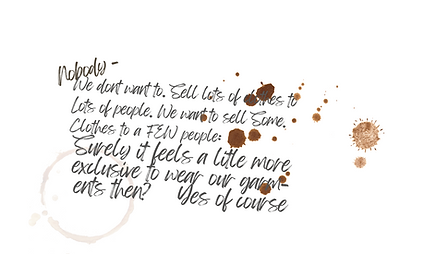 Nobody -
We dont want to. Sell lots of clothes to
Lots of people. We want to sell Some.
Clothes to a FEW people:
Surely it feels a litle more
exclusive to wear our garm-
ents then? Yes of course